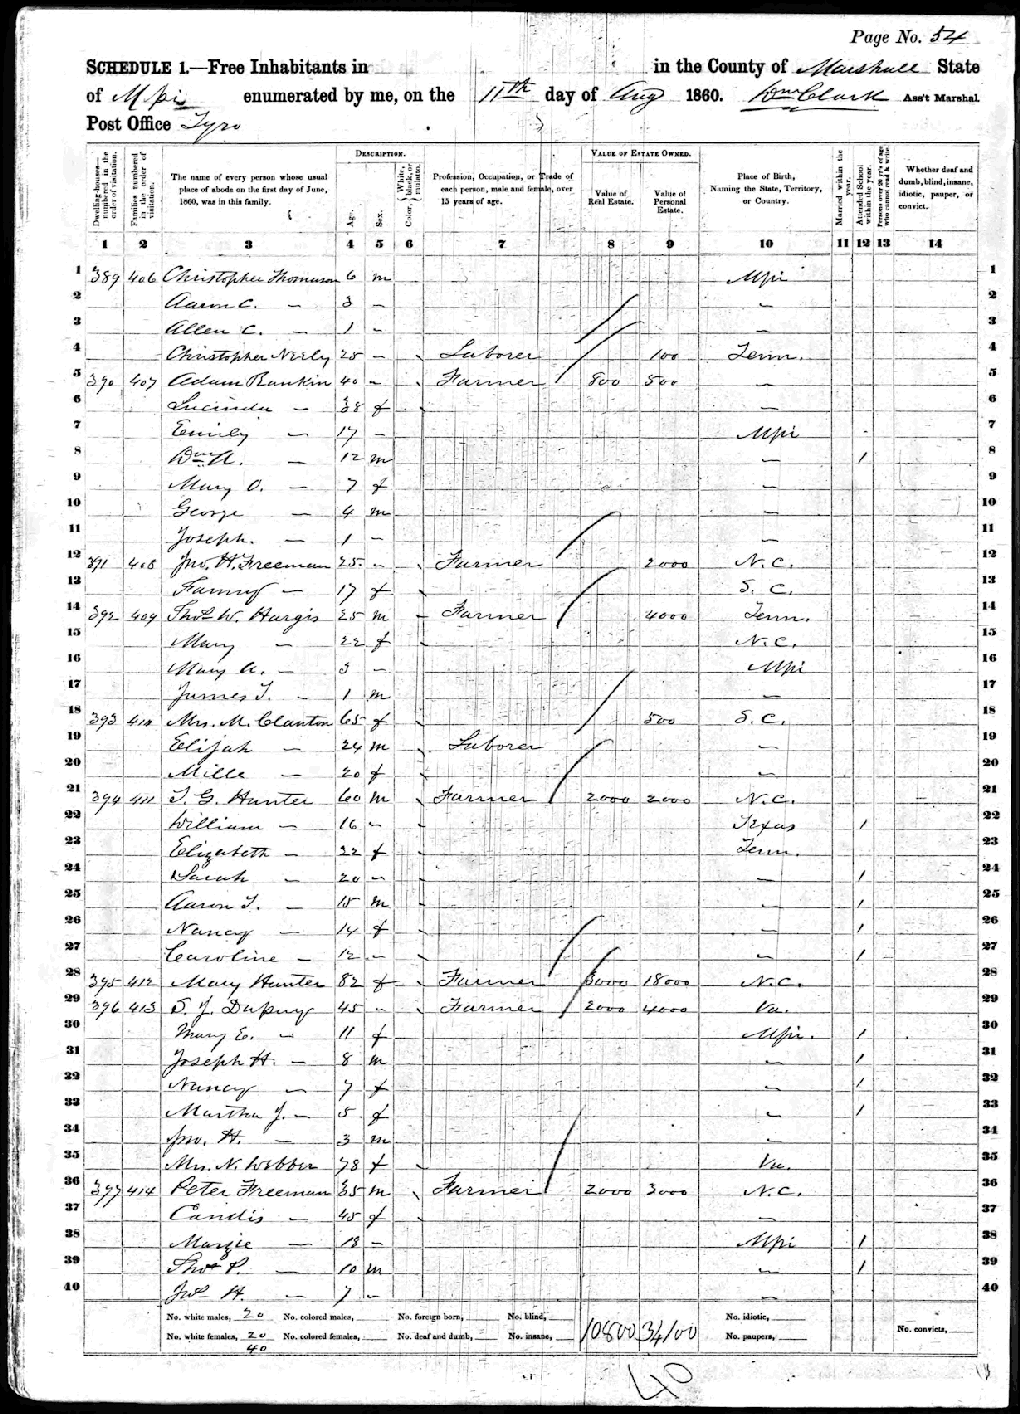 Page No. 54
SCHEDULE 1.—Free Inhabitants in in the County of Marshall State
of Mpi enumerated by me, on the 11th day of Aug 1860. Wm Clark Ass't Marshal.
Post Office Tyro
DESCRIPTION. VALUE OF ESTATE OWNED.
Dwelling-houses—numbered in the order of visitation. Families numbered in the order of visitation. The name of every person whose usual place of abode on the first day of June, 1860, was in this family. Age. Sex. Color, White, black, or mulatto. Profession, Occupation, or Trade of each person, male and female, over 15 years of age. Value of Real Estate. Value of Personal Estate. Place of Birth, Naming the State, Territory, or Country. Married within the year. Attended School within the year. Persons over 20 y'rs of age who cannot read & write. Whether deaf and dumb, blind, insane, idiotic, pauper, or convict.
1 2 3 4 5 6 7 8 9 10 11 12 13 14
1 389 406 Christopher Thomason 6 m Mpi 1
2 Aaron C. — 3 – — 2
3 Allen C. — 1 – — 3
4 Christopher Neely 25 – Laborer 100 Tenn. 4
5 390 407 Adam Rankin 40 – Farmer 800 500 — 5
6 Lucinda — 38 f — 6
7 Emily — 17 – Mpi 7
8 Wm A. — 12 m — 1 8
9 Mary O. — 7 f — 9
10 George — 4 m — 10
11 Joseph. — 1 – — 11
12 391 408 Jno. H. Freeman 25 – Farmer 2000 N.C. 12
13 Fanny — 17 f S.C. 13
14 392 409 Thos W. Hargis 25 m Farmer 4000 Tenn. 14
15 Mary — 22 f N.C. 15
16 Mary A. — 3 – Mpi 16
17 James T. — 1 m — 17
18 393 410 Mrs. M. Clanton 65 f 500 S.C. 18
19 Elijah — 24 m Laborer — 19
20 Mille — 20 f — 20
21 394 411 T. G. Hunter 60 m Farmer 2000 2000 N.C. 21
22 William — 16 – Texas 1 22
23 Elizabeth — 22 f Tenn. 23
24 Sarah — 20 – — 1 24
25 Aaron T. — 15 m — 1 25
26 Nancy — 14 f — 1 26
27 Caroline — 12 – — 1 27
28 395 412 Mary Hunter 82 f Farmer 3000 18000 N.C. 28
29 396 413 S. J. Dupuy 45 – Farmer 2000 4000 Va. 29
30 Mary E. — 11 f Mpi. 1 30
31 Joseph H — 8 m — 1 31
32 Nancy — 7 f — 1 32
33 Martha J. — 5 f — 1 33
34 Jno. H. — 3 m — 34
35 Mrs. N. Webber 78 f Va. 35
36 397 414 Peter Freeman 35 m Farmer 2000 3000 N.C. 36
37 Candis — 45 f — 37
38 Margie — 18 – Mpi 1 38
39 Thos P. — 10 m — 1 39
40 Jno H. — 7 – — 40
No. white males, 20 No. colored males, No. foreign born, No. blind, 10800 34100 No. idiotic,
No. white females, 20 No. colored females, No. deaf and dumb, No. insane, No. paupers, No. convicts,
40
40